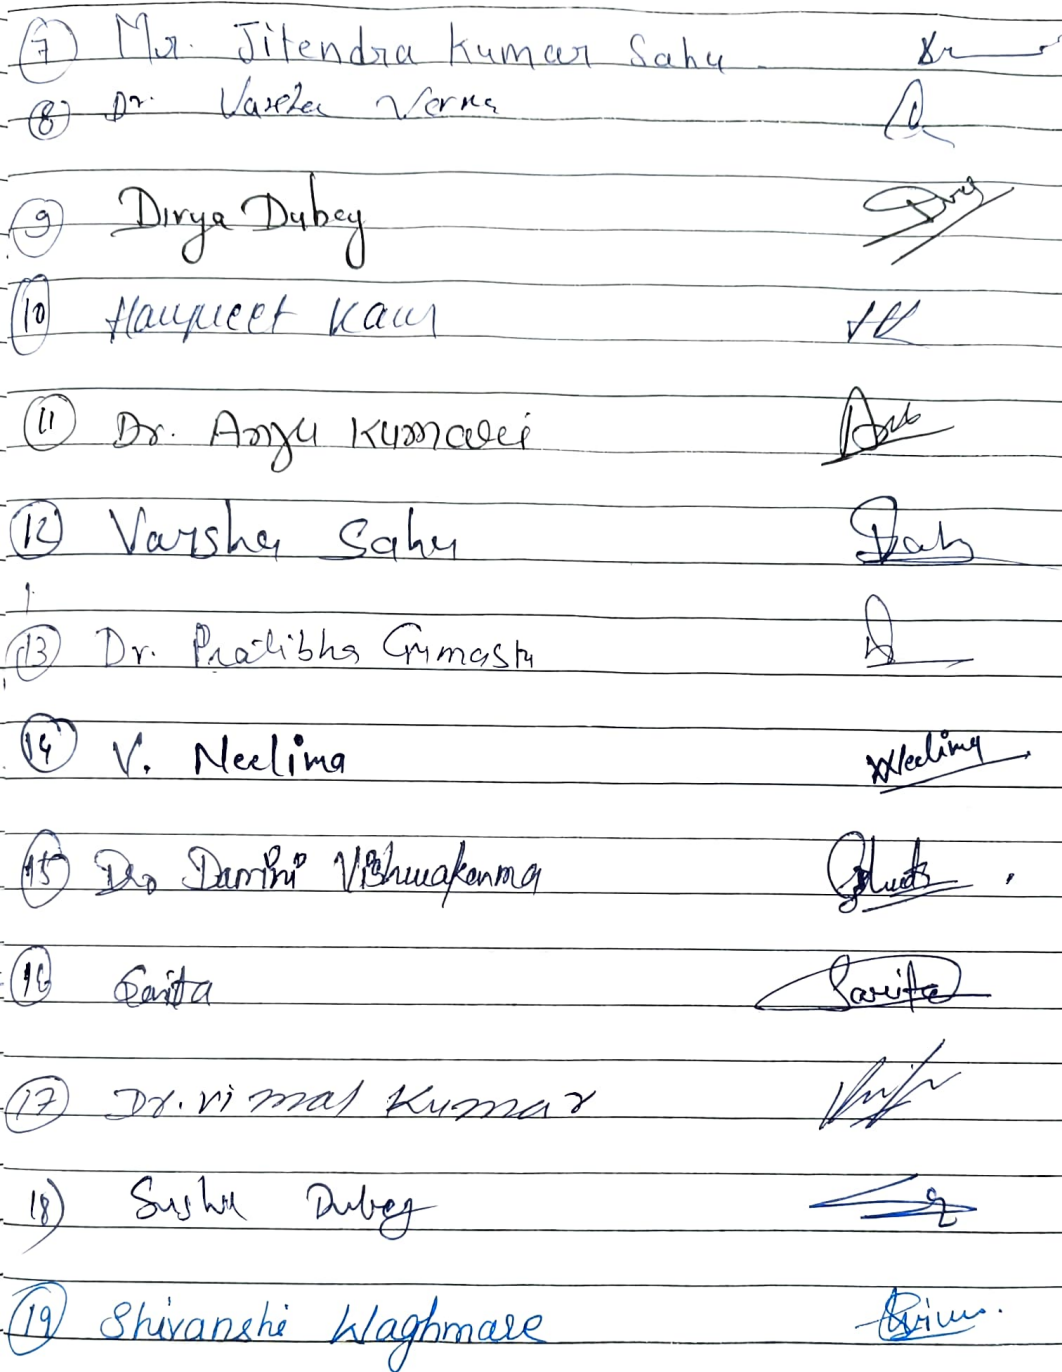 7 Mr. Jitendra Kumar Sahu
8 Dr. Verma
9 Divya Dubey
10 Harpreet Kaur
11 Dr. Anju Kumari
12 Varsha Sahu
13 Dr. Pratibha Gumasta
14 V. Neelima Neelima
15 Dr. Damini Vishwakarma
16 Sarita Sarita
17 Dr. Vimal Kumar
18) Dubey
19 Shivanshi Waghmare